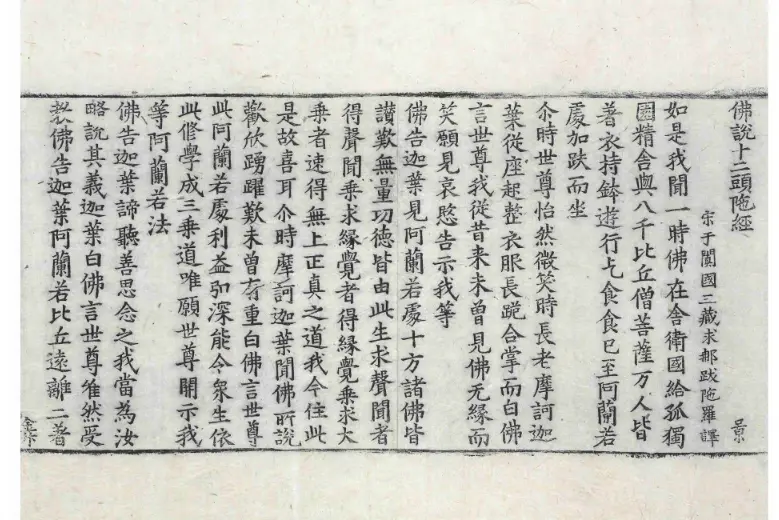 佛說十二頭陁經 景
宋于闐國三藏求郍跋陁羅譯
如是我聞一時佛在舎衛國給孤獨
園精舎與八千比丘僧菩薩万人皆
著衣持鉢遊行乞食食已至阿蘭若
處加趺而坐
尒時世尊怡然微笑時長老摩訶迦
葉從座起整衣服長跪合掌而白佛
言世尊我從昔来未曽見佛无縁而
笑願見哀愍告示我等
佛告迦葉見阿蘭若處十方諸佛皆
讃歎無量功德皆由此生求聲聞者
得聲聞乗求縁覺者得縁覺乗求大
乗者速得無上正真之道我今住此
是故喜耳尒時摩訶迦葉聞佛所說
歡欣踊躍歎未曽有重白佛言世尊
此阿蘭若處利益弘深能令衆生依
此修學成三乗道唯願世尊開示我
等阿蘭若法
佛告迦葉諦聽善思念之我當為汝
略說其義迦葉白佛言世尊唯然受
教佛告迦葉阿蘭若比丘遠離二著